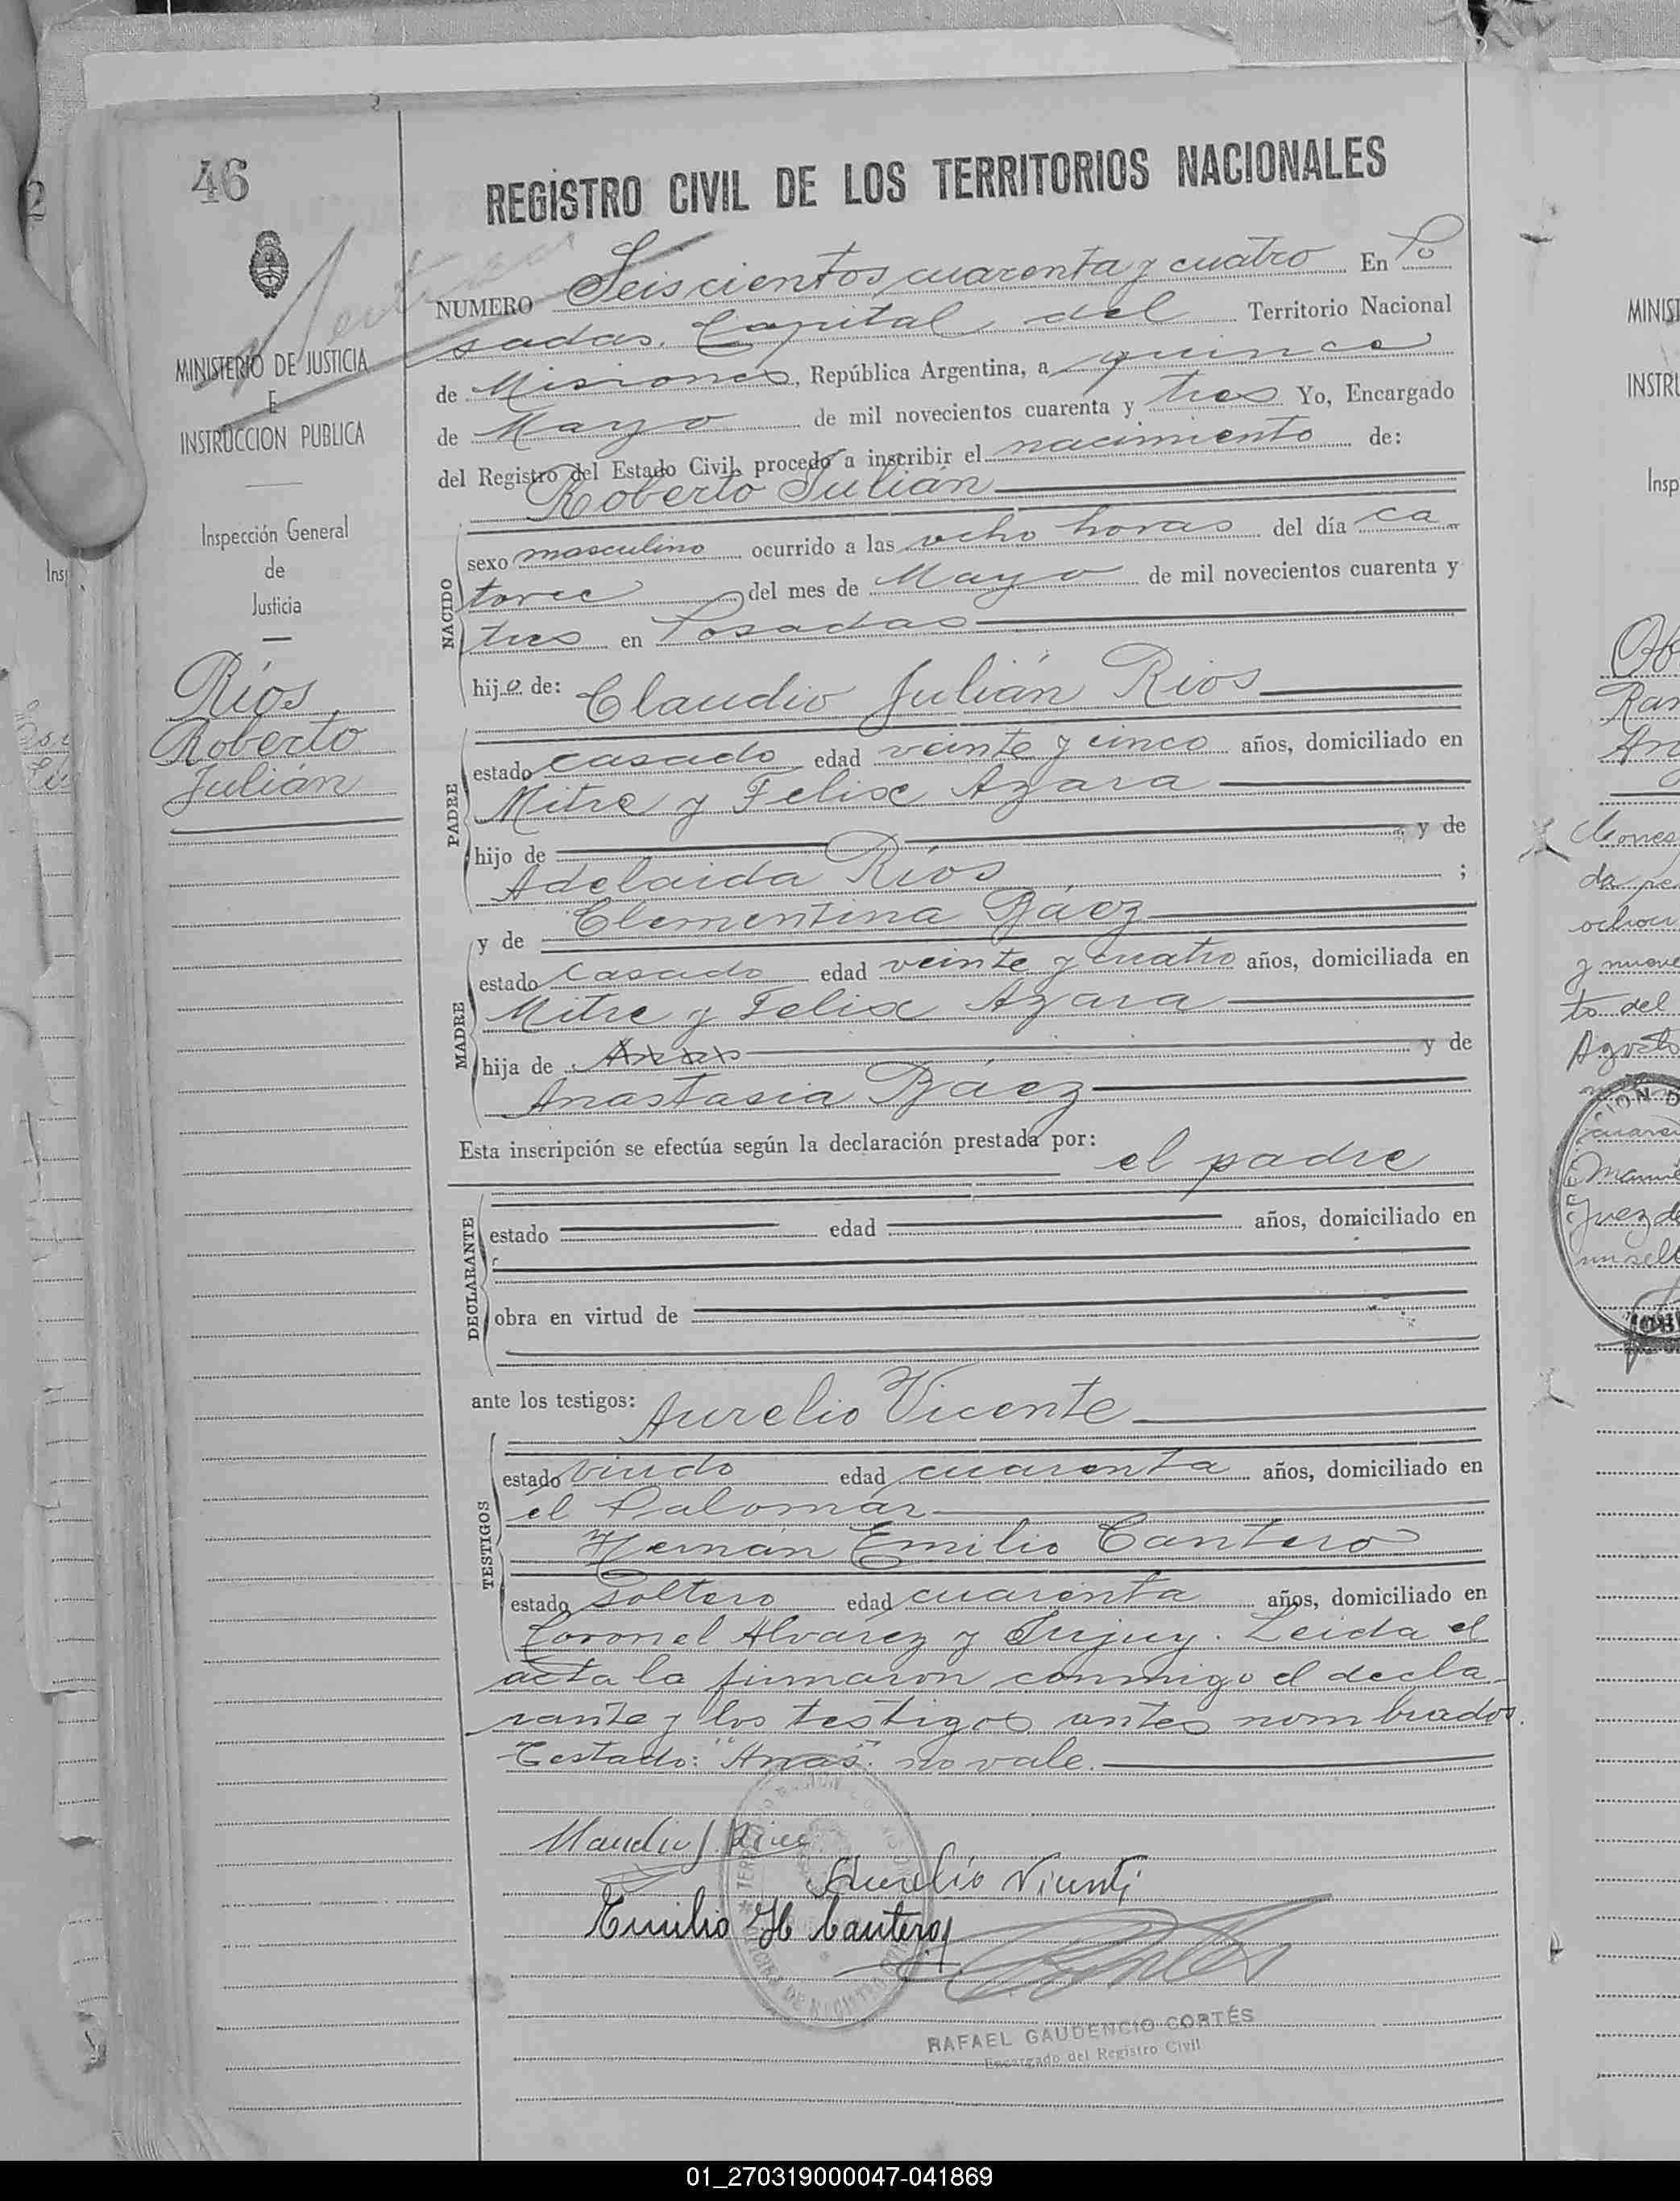 46
REGISTRO CIVIL DE LOS TERRITORIOS NACIONALES
NUMERO Seiscientos cuarenta y cuatro En Po
sadas. Capital del Territorio Nacional
de Misiones, República Argentina, a quince
de Mayo de mil novecientos cuarenta y tres Yo, Encargado
del Registro del Estado Civil, procedo a inscribir el nacimiento de:
Roberto Julián
NACIDO
sexo masculino ocurrido a las ocho horas del día ca
torce del mes de Mayo de mil novecientos cuarenta y
tres en Posadas
hijo de: Claudio Julián Rios
PADRE
estado casado edad veinte y cinco años, domiciliado en
Mitre y Felix Azara
hijo de y de
Adelaida Ríos ;
y de Clementina Báez
MADRE
estado casado edad veinte y cuatro años, domiciliada en
Mitre y Felix Azara
hija de y de
Anastasia Báez
Esta inscripción se efectúa según la declaración prestada por: el padre
DECLARANTE
estado edad años, domiciliado en
obra en virtud de
ante los testigos: Aurelio Vicente
TESTIGOS
estado viudo edad cuarenta años, domiciliado en
el Palomar
Hernán Emilio Cantero
estado soltero edad cuarenta años, domiciliado en
Coronel Alvarez y Jujuy. Leida el
acta la firmaron conmigo el decla
rante y los testigos antes nombrados.
Testado: "Anas" no vale.
Claudio J. Rios
Aurelio Vicente
Emilio H Cantero
RAFAEL GAUDENCIO CORTÉS
Encargado del Registro Civil
MINISTERIO DE JUSTICIA
E
INSTRUCCION PUBLICA
Inspección General
de
Justicia
Ríos
Roberto
Julián
MINIST
INSTRU
Insp
Ran
da
ochocu
y nueve
to del
Agosto
Juez de
01_270319000047-041869